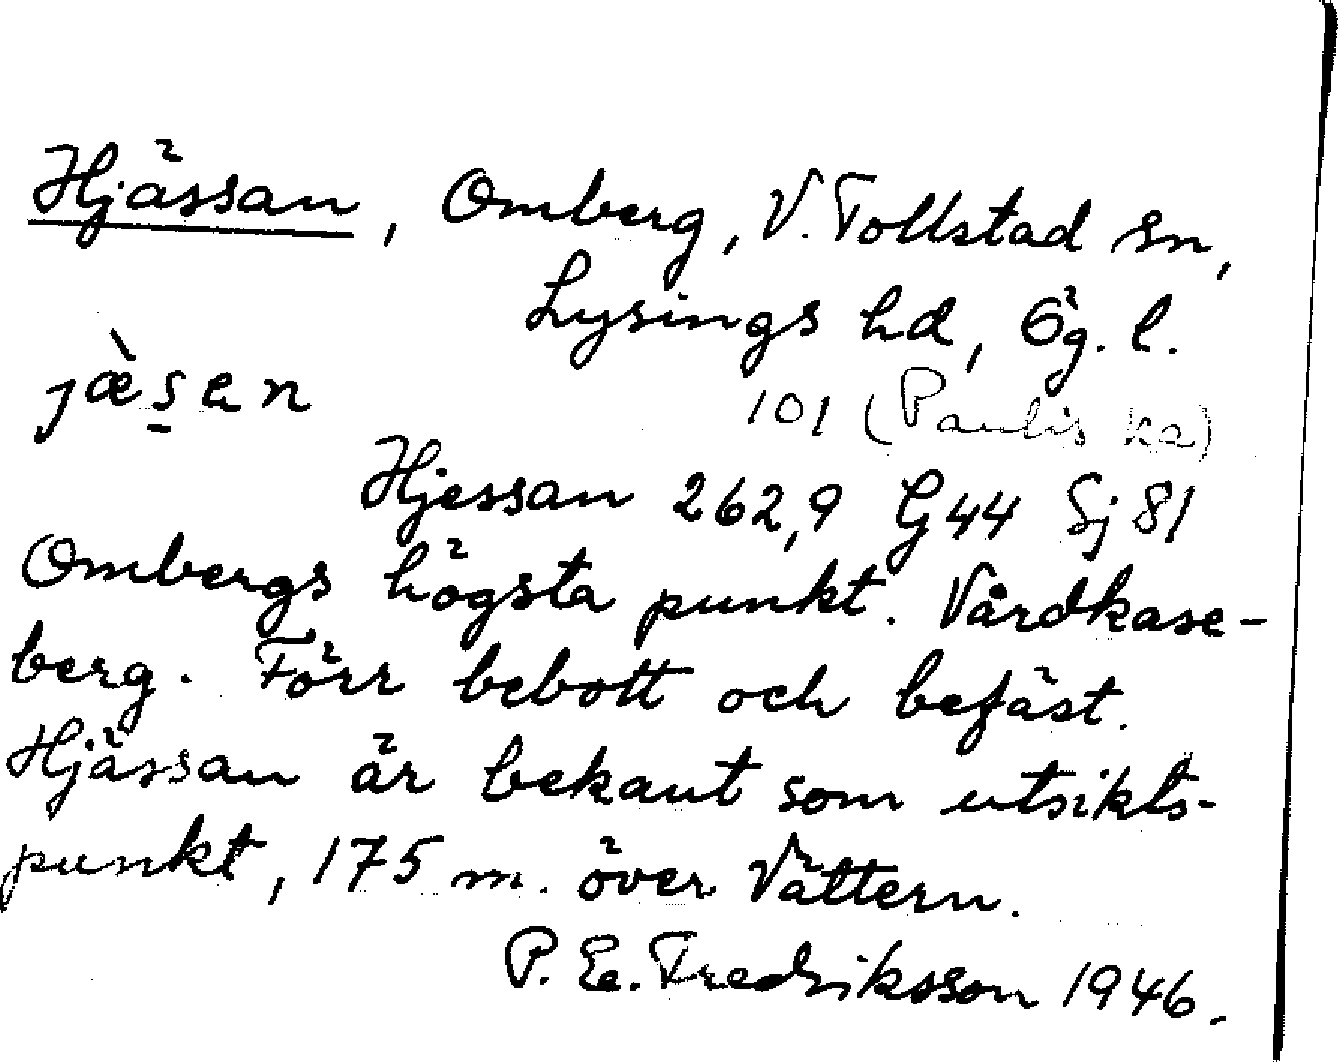 Hjässan, Omberg, V. Tollstad sn,
Lysings hd, Ög. l.
jàsan
101 (Paulis ka)
Hjessan 262,9 G44 Sj 81
Ombergs högsta punkt. Vårdkase-
berg. Förr bebott och befäst.
Hjässan är bekant som utsikts-
punkt, 175 m. över Vättern.
P. E. Fredriksson 1946.